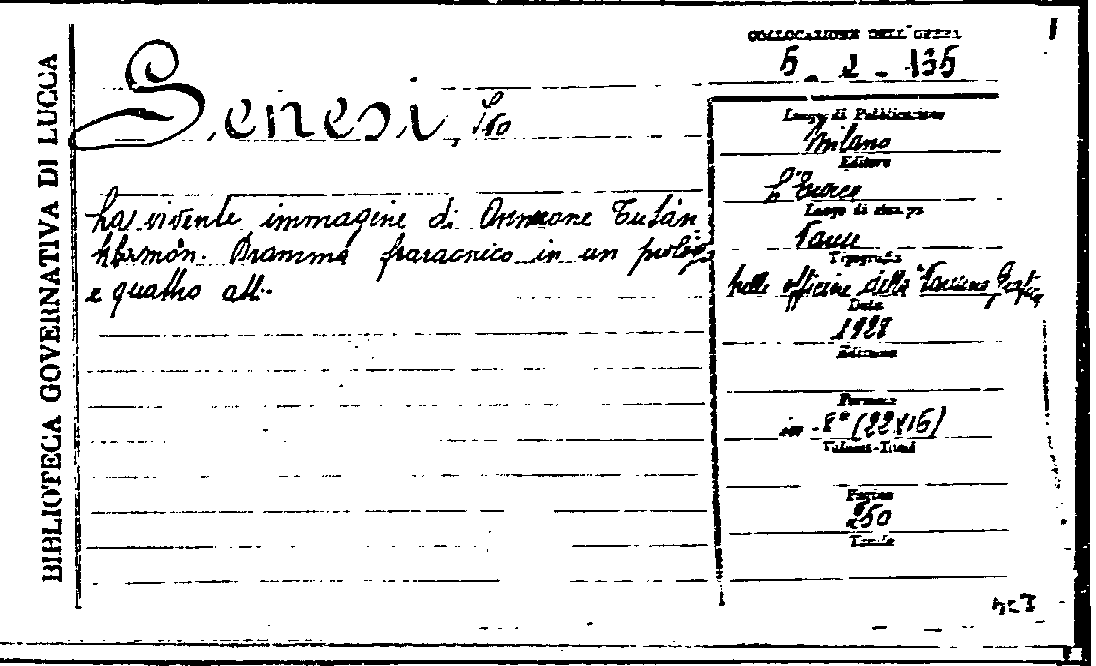 BIBLIOTECA GOVERNATIVA DI LUCCA
COLLOCAZIONE DELL'OPERA
5 - 2 - 135
Senesi, Ivo
La vivente immagine di Ammone Tutân-
khamôn. Dramma faraonico in un prologo
e quattro atti.
Luogo di Pubblicazione
Milano
Editore
L'Eroica
Luogo di stampa
Tipografia
nelle officine della Grafica
Data
1928
Edizione
Formato
in-8° (22X16)
Volumi-Tomi
Pagine
250
Tavole